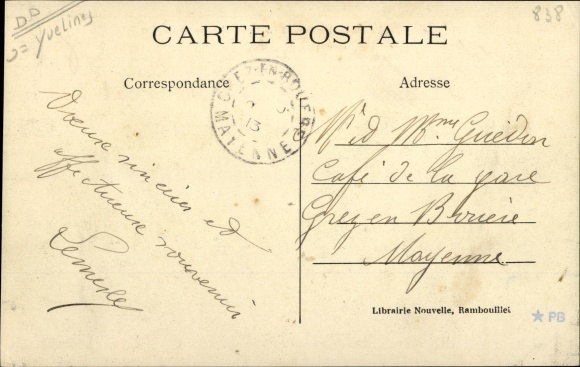 D.D
= Yvelines
838
CARTE POSTALE
Correspondance
Adresse
GREZ-EN-BOUERE
13
MAYENNE
Voeux sincères et
affectueux souvenir
Lemesle
Mr et Mme Guédon
Café de la gare
Grez en Bouère
Mayenne
Librairie Nouvelle, Rambouillet
PB